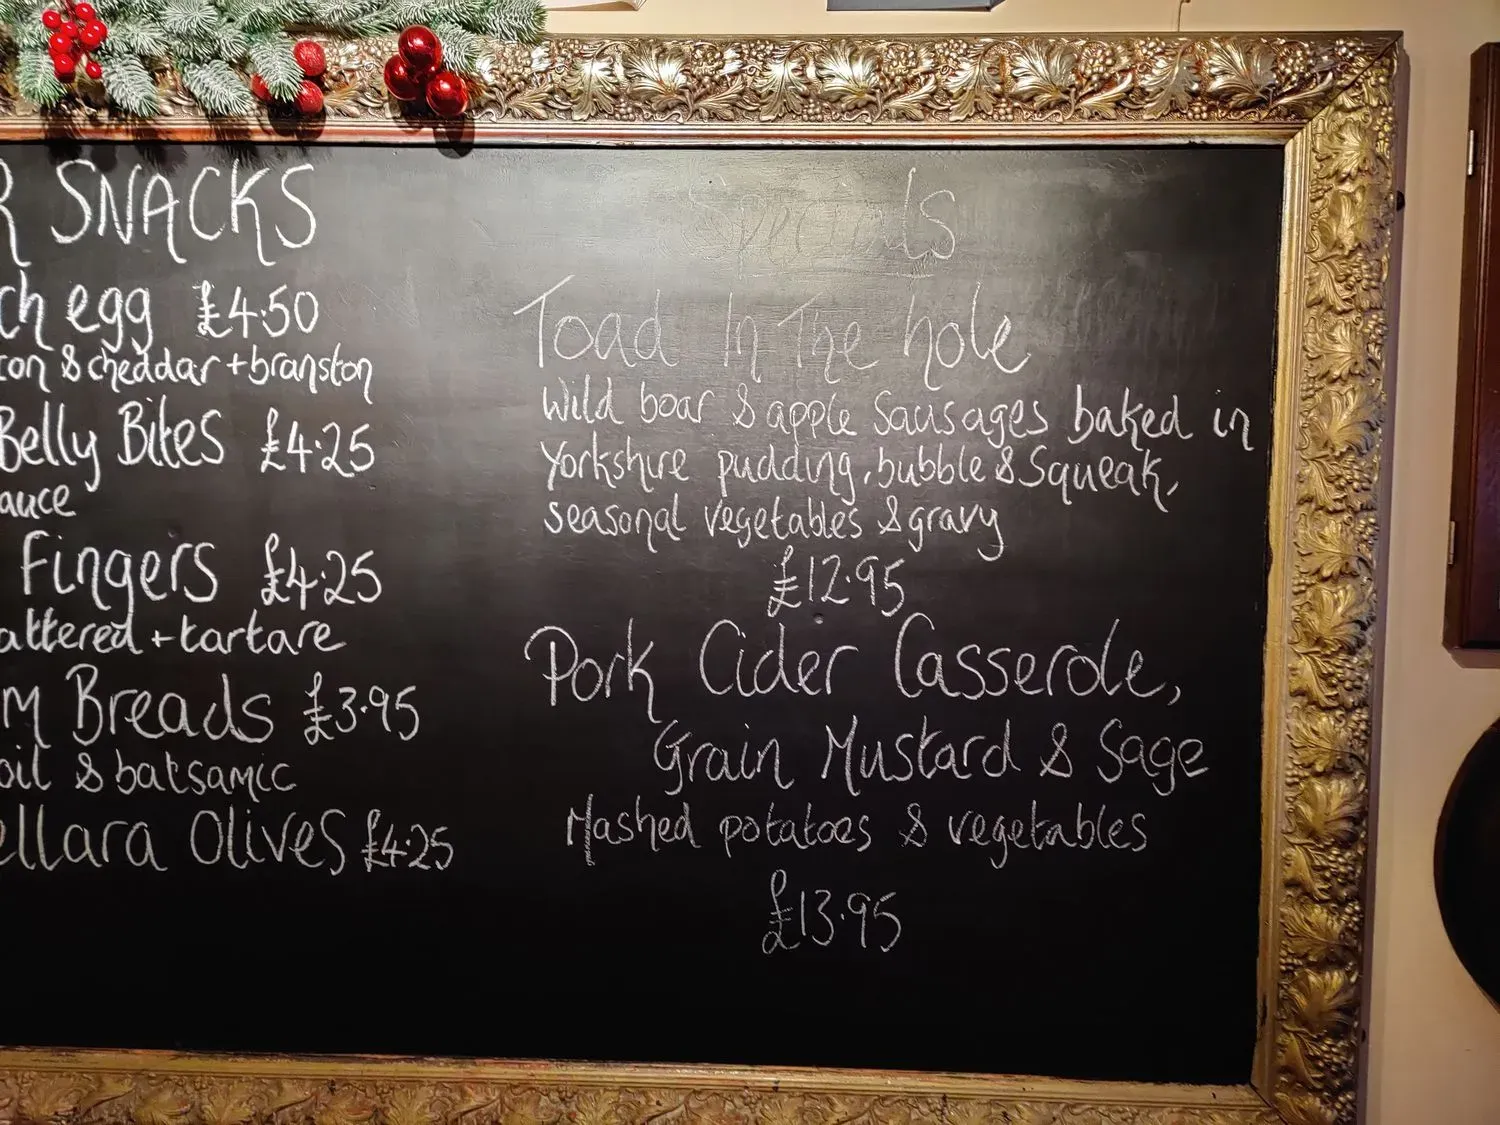 SNACKS
egg £4.50
& cheddar + branston
Belly Bites £4.25
Fingers £4.25
+ tartare
Breads £3.95
oil & balsamic
Olives £4.25
Specials
Toad In The hole
Wild boar & apple Sausages baked in
Yorkshire pudding, bubble & Squeak,
seasonal vegetables & gravy
£12.95
Pork Cider Casserole,
Grain Mustard & Sage
Mashed potatoes & vegetables
£13.95